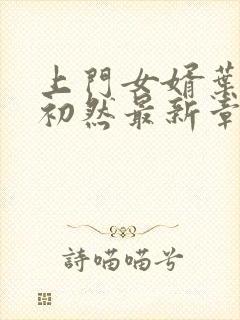 上門女婿葉
初然最新章
詩喵喵兮